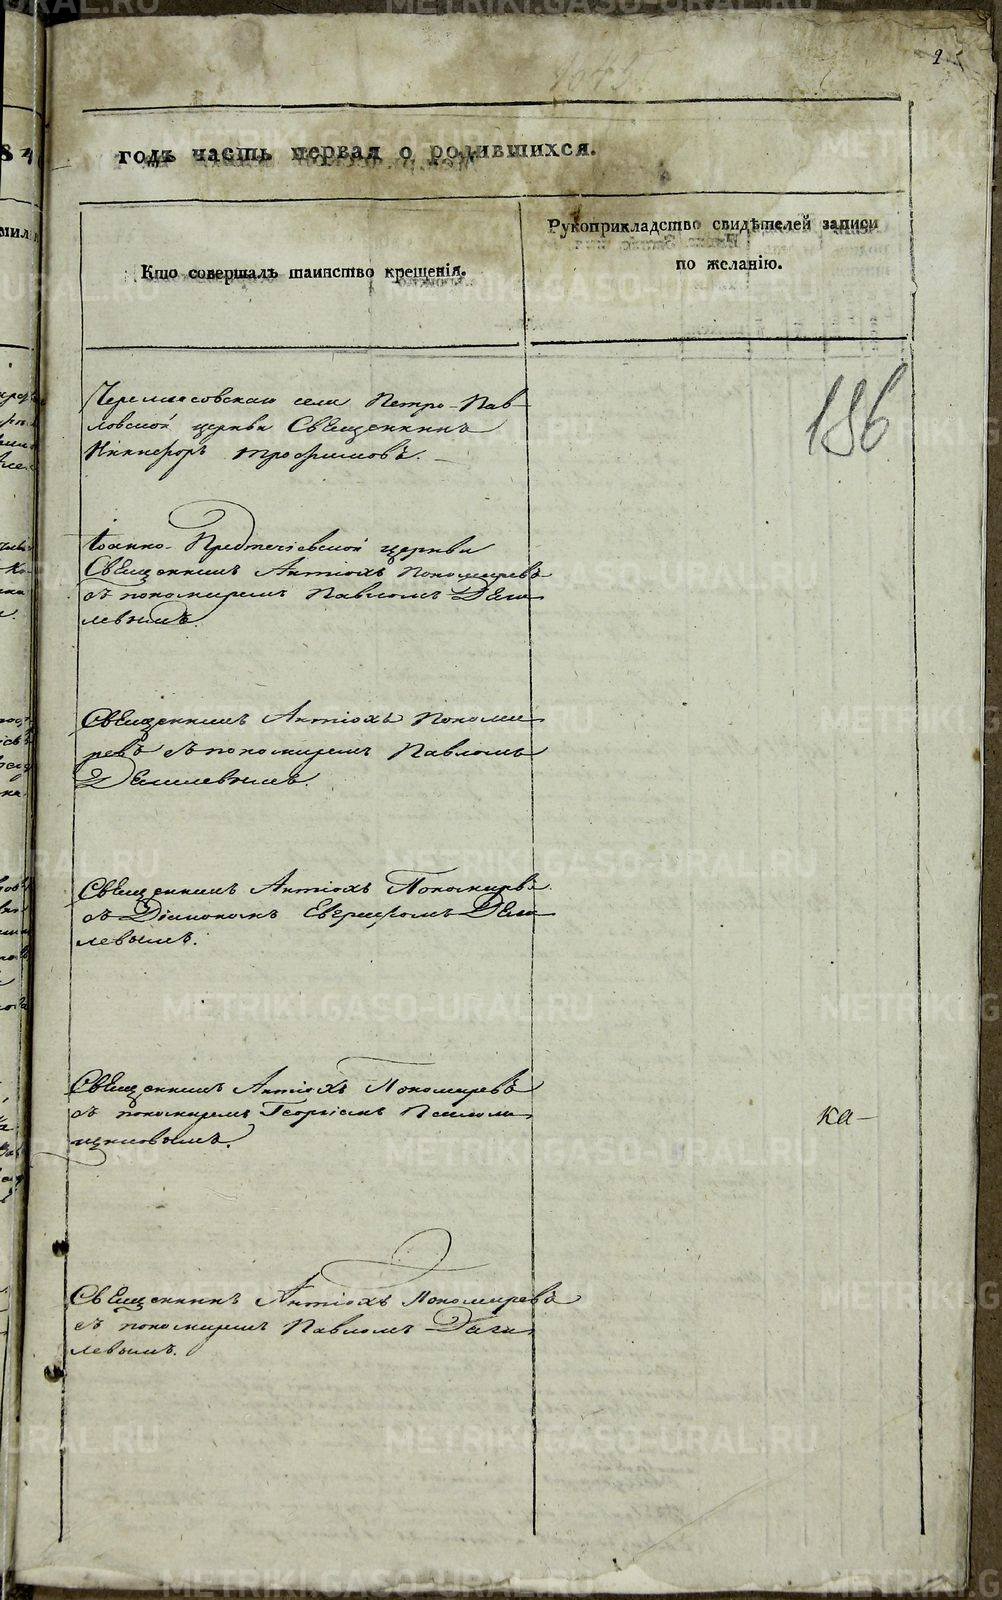 2
годъ часть первая о родившихся.
Кто совершалъ таинство крещенія.
Рукоприкладство свидѣтелей записи
по желанію.
186
села Петро-Пав-
ловской церкви Священникъ
Никифоръ Трофимовъ.
Іоанно-Предтечіевской церкви
Священникъ Антіохъ Пономаревъ
съ пономаремъ Павломъ
левымъ.
Священникъ Антіохъ Понома-
ревъ съ пономаремъ Павломъ
Священникъ Антіохъ Пономаревъ
съ Діакономъ
левымъ.
Священникъ Антіохъ Пономаревъ
съ пономаремъ Георгіемъ
ка-
Священникъ Антіохъ Пономаревъ
съ пономаремъ Павломъ
левымъ.
METRIKI.GASO-URAL.RU